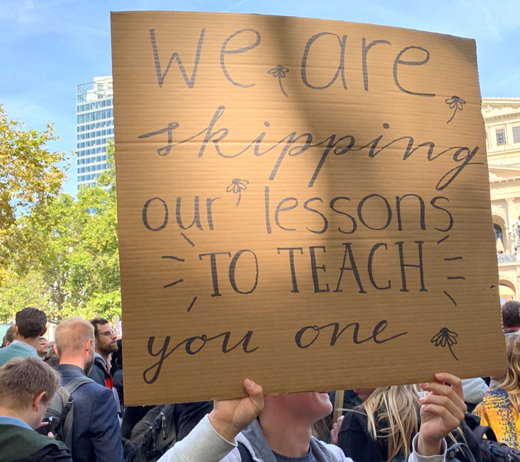 We are
skipping
our lessons
TO TEACH
you one